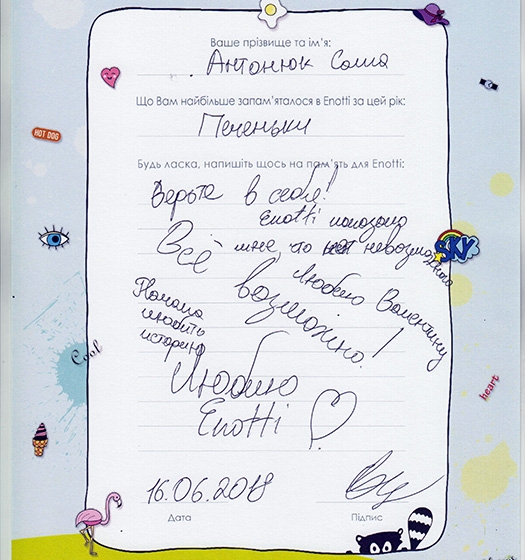 Ваше прізвище та ім'я:
Антонюк Саша
Що Вам найбільше запам'яталося в Enotti за цей рік:
Печеньки
Будь ласка, напишіть щось на пам'ять для Enotti:
Верьте в себя!
Enotti показало
мне, что нет невозможного
Всё
возможно!
Люблю Валентину
Начала
любить
историю
Люблю
Enotti
16.06.2018
Дата
Підпис
HOT DOG
SKY
Cool
heart